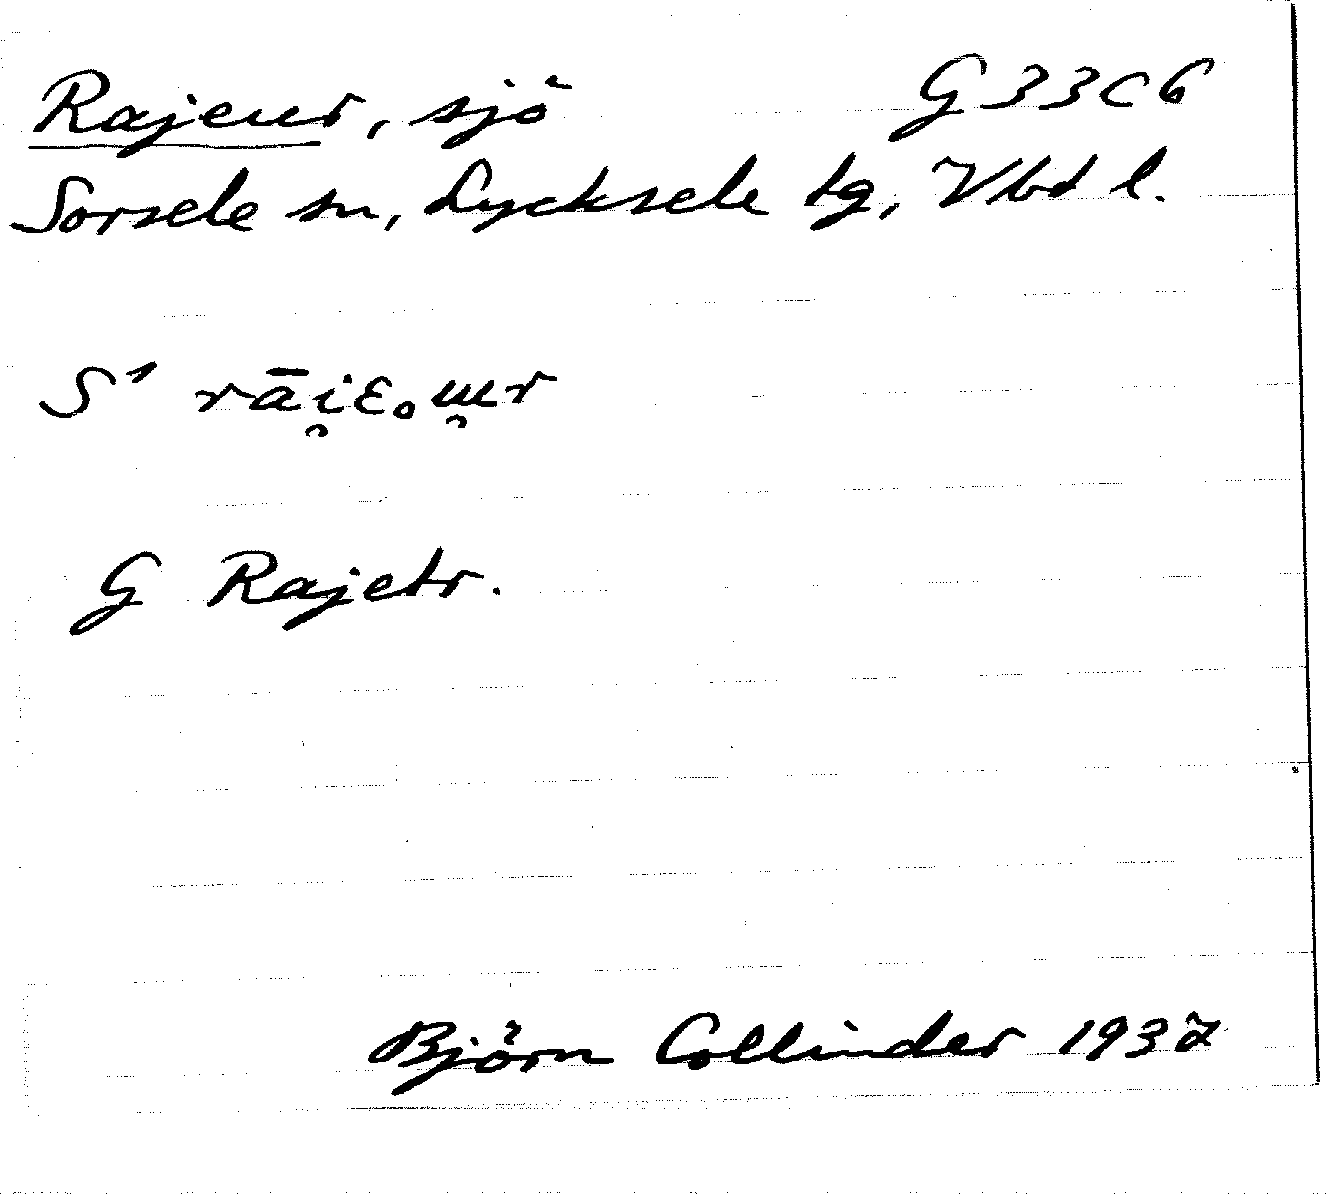 Rajeur, sjö G 33 C 6
Sorsele sn, Lycksele tg, Vbd l.
S¹ rāi̯ɛ˳ɯ̯r
G Rajetr.
Björn Collinder 1937